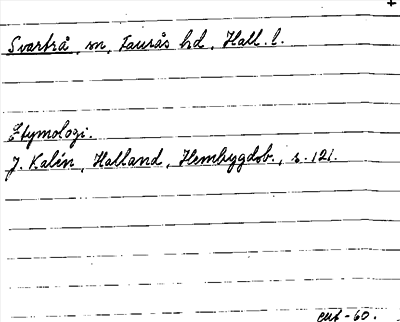 +
Svartrå, sn, Faurås hd, Hall. l.
Etymologi.
J. Kalén, Halland, Hembygdsb., s. 121.
-60.